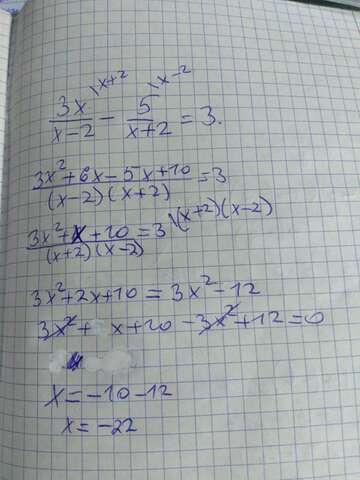 \x+2 \x-2
3x/x-2 - 5/x+2 = 3.
3x²+6x-5x+10/(x-2)(x+2) = 3
3x²+x+10/(x+2)(x-2) = 3 \(x+2)(x-2)
3x²+2x+10 = 3x²-12
3x²+ x+10-3x²+12=0
x=-10-12
x=-22